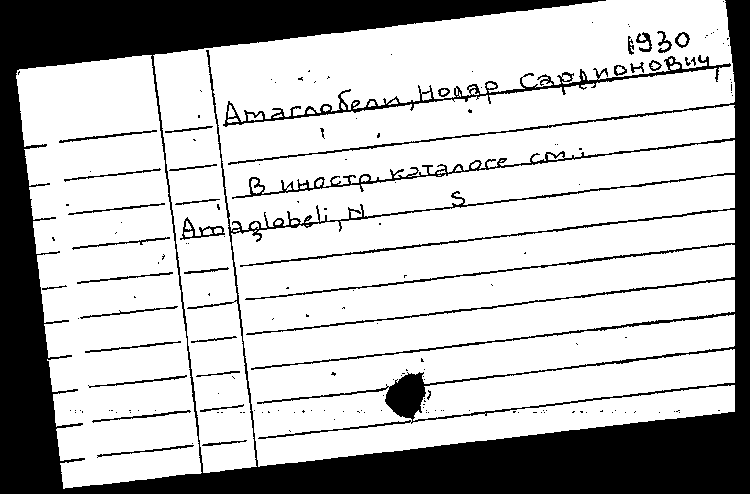 1930
Амаглобели, Нодар Сардионович,
В иностр. каталоге см.:
Amaglobeli, N S